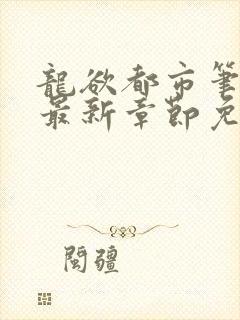 龍欲都市筆
最新章節免
閩疆